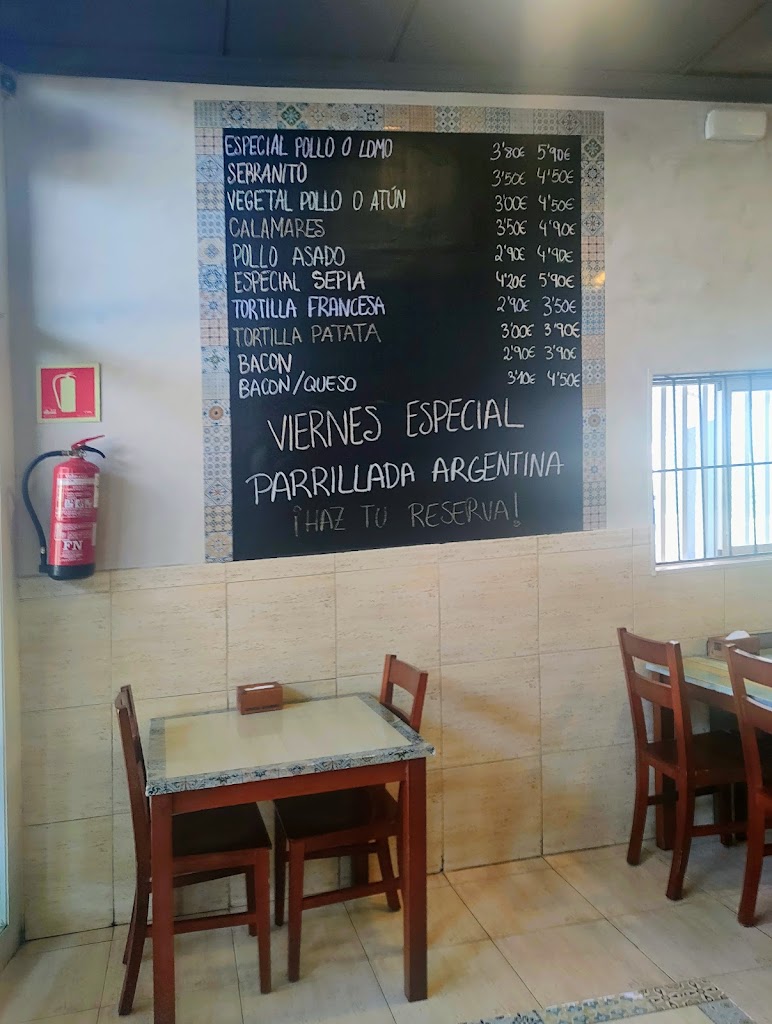 ESPECIAL POLLO O LOMO 3'80€ 5'90€
SERRANITO 3'50€ 4'50€
VEGETAL POLLO O ATÚN 3'00€ 4'50€
CALAMARES 3'50€ 4'90€
POLLO ASADO 2'90€ 4'90€
ESPECIAL SEPIA 4'20€ 5'90€
TORTILLA FRANCESA 2'90€ 3'50€
TORTILLA PATATA 3'00€ 3'90€
BACON 2'90€ 3'90€
BACON/QUESO 3'10€ 4'50€
VIERNES ESPECIAL
PARRILLADA ARGENTINA
¡HAZ TU RESERVA!
FN